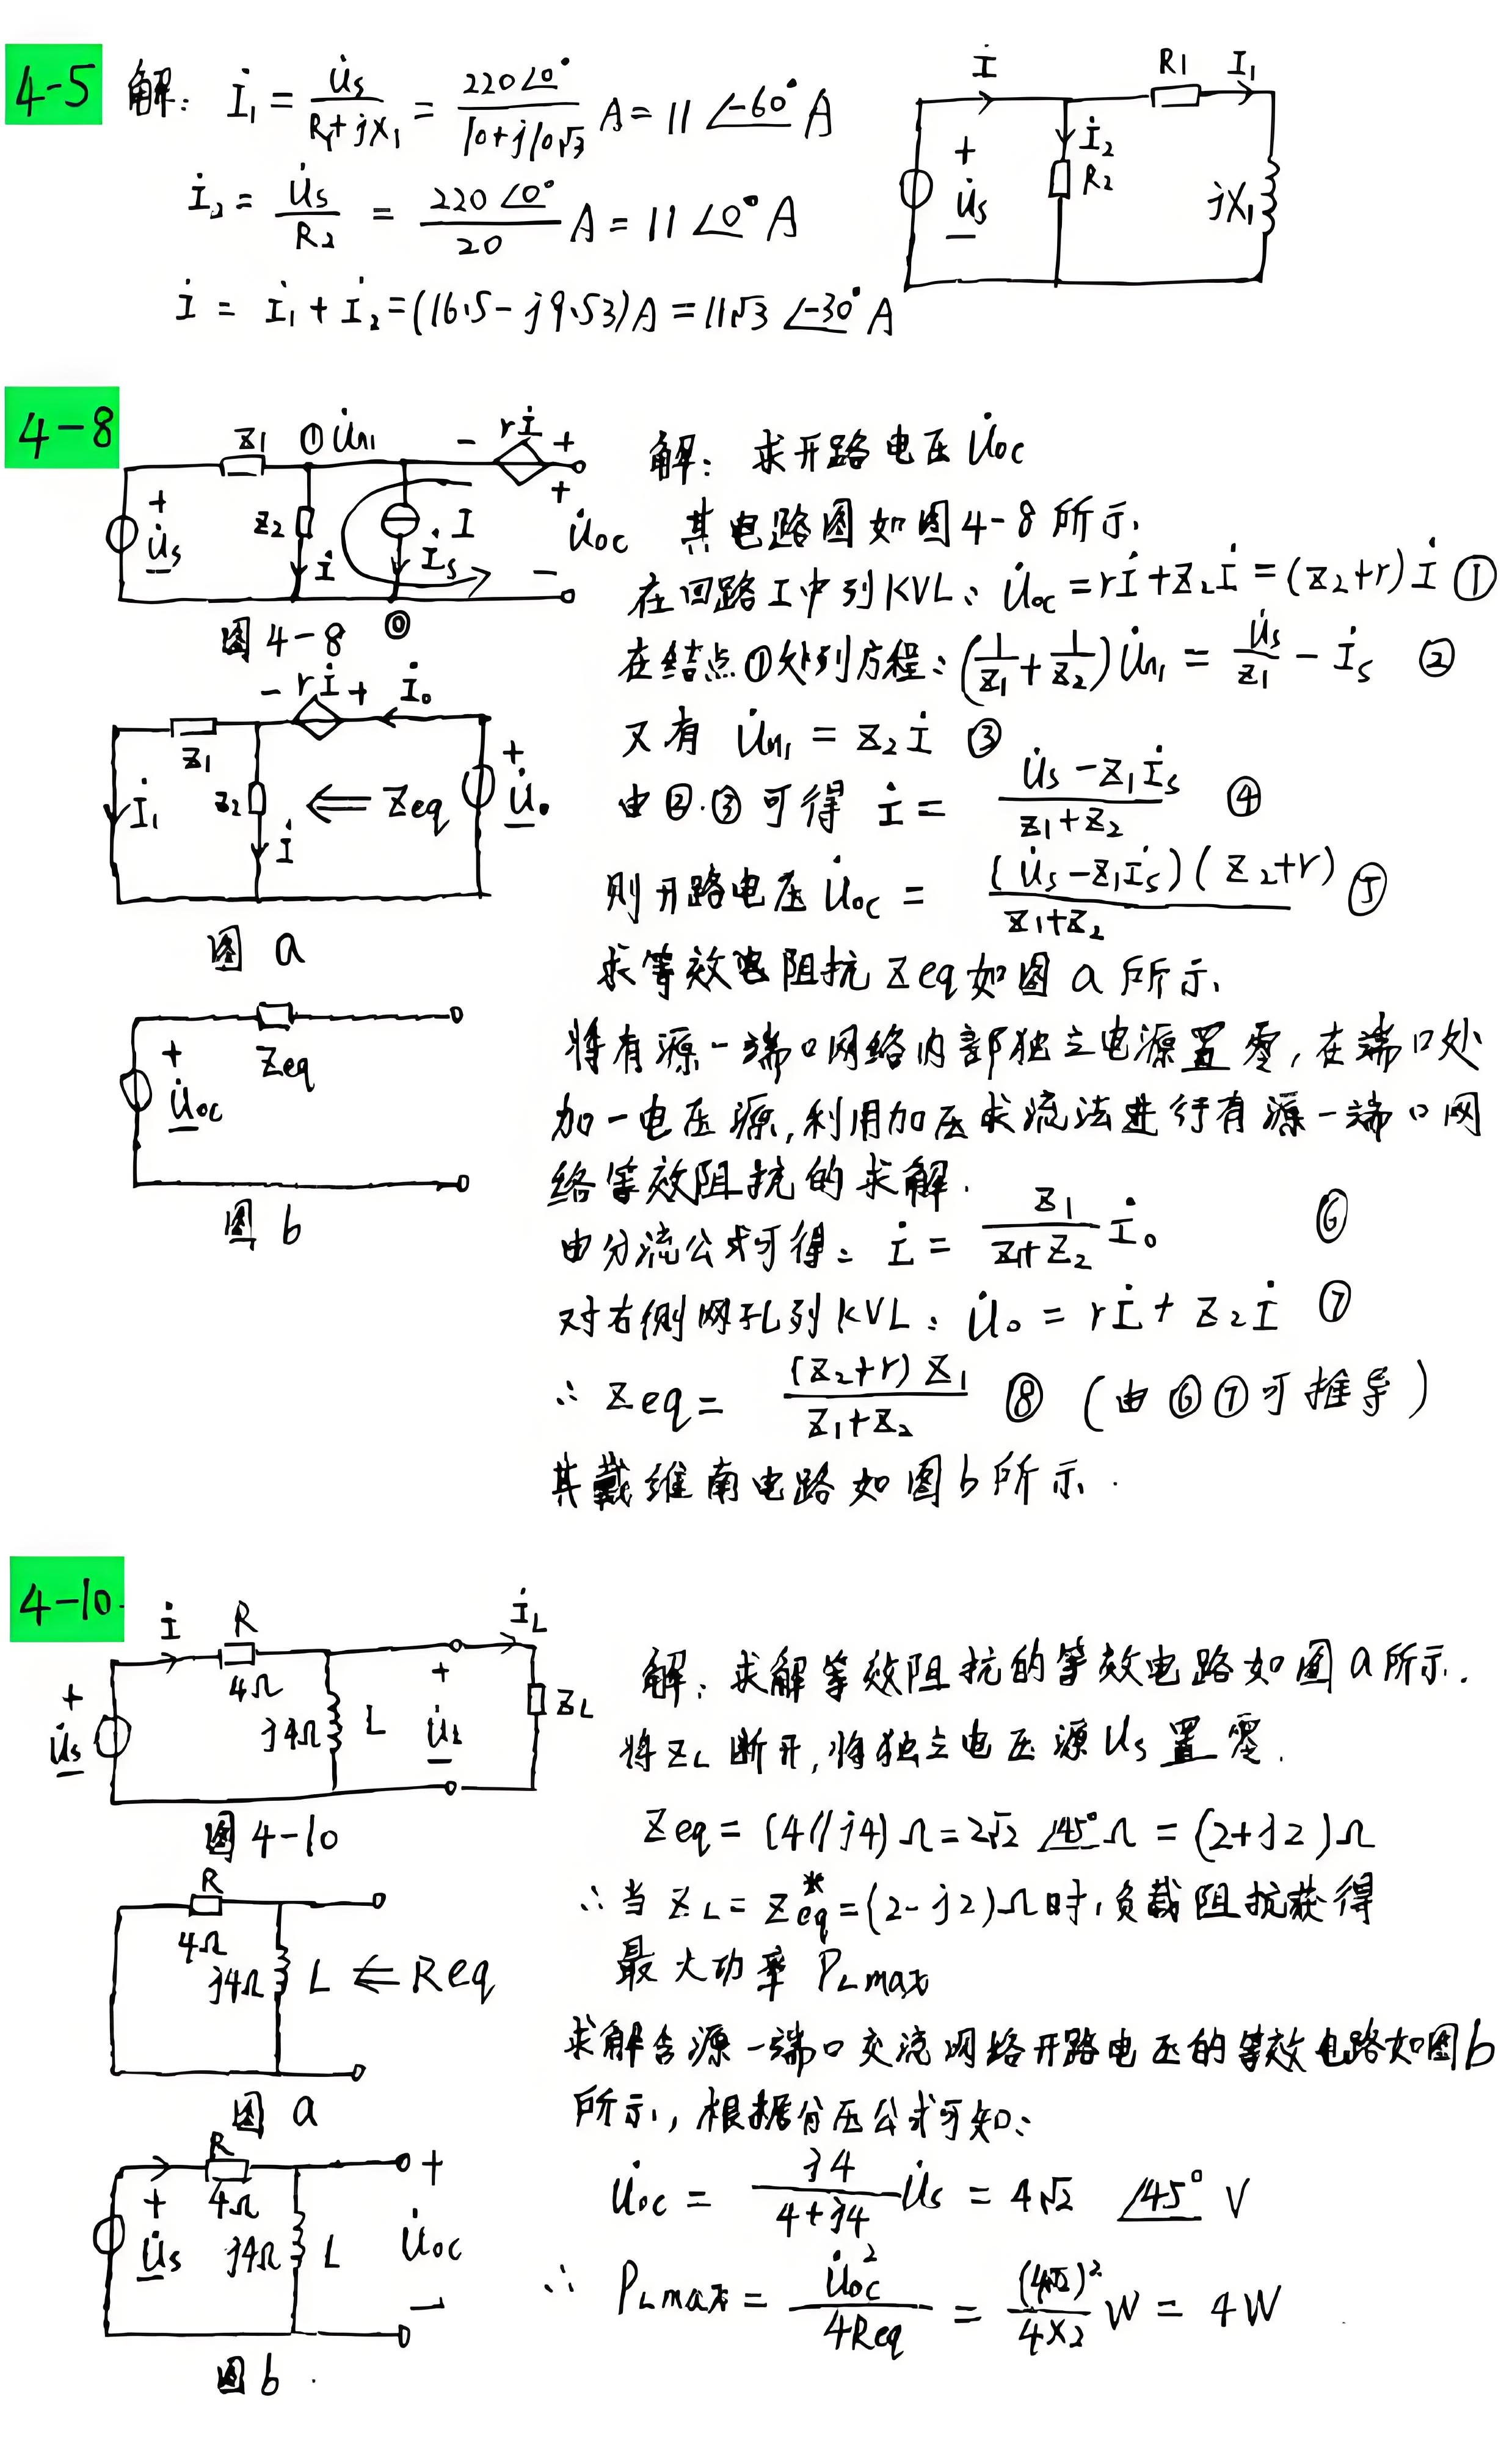 4-5 解: İ₁ = U̇s/(R₁+jX₁) = 220∠0°/(10+j10√3) A = 11∠-60° A
İ₂ = U̇s/R₂ = 220∠0°/20 A = 11∠0° A
İ = İ₁ + İ₂ = (16.5-j9.53)A = 11√3∠-30° A
İ R1 İ₁
İ₂
+ R₂
U̇s jX₁
−
4-8
Z₁ ① U̇n₁ − rİ +
+ Z₂ I +
U̇s İ İs U̇oc
− −
图4-8 ⓪
解: 求开路电压U̇oc
其电路图如图4-8所示.
在回路I中列KVL: U̇oc = rİ+Z₂İ = (Z₂+r)İ ①
在结点①处列方程: (1/Z₁+1/Z₂)U̇n₁ = U̇s/Z₁ − İs ②
又有 U̇n₁ = Z₂İ ③
由②.③可得 İ = (U̇s−Z₁İs)/(Z₁+Z₂) ④
则开路电压U̇oc = (U̇s−Z₁İs)(Z₂+r)/(Z₁+Z₂) ⑤
− rİ + İ₀
Z₁ +
İ₁ Z₂ ⇐ Zeq U̇₀
İ −
图 a
求等效电阻抗Zeq如图a所示.
将有源一端口网络内部独立电源置零,在端口处
加一电压源,利用加压求流法进行有源一端口网
络等效阻抗的求解.
由分流公式可得: İ = Z₁/(Z₁+Z₂) İ₀ ⑥
对右侧网孔列KVL: U̇₀ = rİ + Z₂İ ⑦
∴ Zeq = (Z₂+r)Z₁/(Z₁+Z₂) ⑧ (由⑥⑦可推导)
其戴维南电路如图b所示.
+ Zeq
U̇oc
−
图 b
4-10.
İ R İL
+ 4Ω + ZL
U̇s j4Ω L U̇L
− −
图4-10
解: 求解等效阻抗的等效电路如图a所示.
将ZL断开,将独立电压源Us置零.
Zeq = (4//j4)Ω = 2√2∠45°Ω = (2+j2)Ω
∴当ZL = Z*eq = (2-j2)Ω时,负载阻抗获得
最大功率 PLmax
R
4Ω
j4Ω L ⇐ Req
图 a
求解含源一端口交流网络开路电压的等效电路如图b
所示,根据分压公式可知:
U̇oc = j4/(4+j4) U̇s = 4√2∠45° V
∴ PLmax = U̇oc²/4Req = (4√2)²/(4×2) W = 4W
R +
+ 4Ω
U̇s j4Ω L U̇oc
− −
图b.